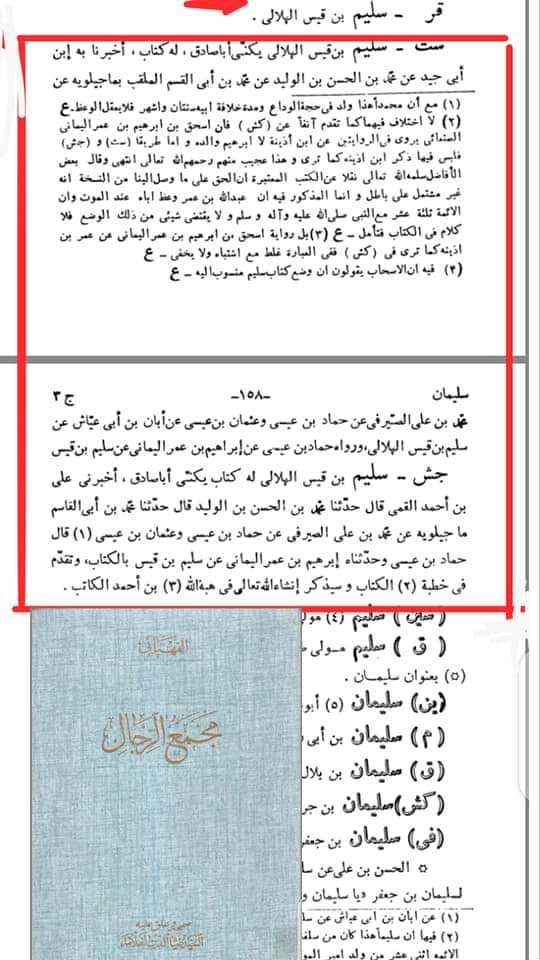 قر - سليم بن قيس الهلالى .
ست - سليم بن قيس الهلالى يكنّى أباصادق ، له كتاب ، أخبرنا به إبن
أبى جيد عن محمّد بن الحسن بن الوليد عن محمّد بن أبى القسم الملقب بماجيلويه عن
(١) مع أن محمداً هذا ولد فى حجة الوداع ومدة خلافة ابيه سنتان واشهر فلا يعقل الوعظ - ع
(٢) لا اختلاف فيهما كما تقدم آنفاً عن (كش) فان اسحق بن ابرهيم بن عمر اليمانى
الصنعانى يروى فى الروايتين عن ابن أذينة لا ابرهيم والده و اما طريقا (ست) و (جش)
فليس فيها ذكر ابن اذينه كما ترى و هذا عجيب منهم رحمهم الله تعالى انتهى وقال بعض
الأفاضل سلمه الله تعالى نقلا عن الكتب المعتبرة ان الحق على ما وصل الينا من النسخة انه
غير مشتمل على باطل و انما المذكور فيه ان عبدالله بن عمر وعظ اباه عند الموت وان
الائمة ثلثة عشر مع النبى صلى الله عليه وآله و سلم و لا يقتضى شيئى من ذلك الوضع فلا
كلام فى الكتاب فتأمل - ع (٣) بل رواية اسحق بن ابرهيم بن عمر اليمانى عن عمر بن
اذينه كما ترى فى (كش) ففى العبارة غلط مع اشتباه ولا يخفى - ع
(٤) فيه ان الاصحاب يقولون ان وضع كتاب سليم منسوب اليه - ع
سليمان -١٥٨- ج ٣
محمّد بن على الصيرفى عن حماد بن عيسى وعثمان بن عيسى عن أبان بن أبى عيّاش عن
سليم بن قيس الهلالى، ورواه حماد بن عيسى عن إبراهيم بن عمر اليمانى عن سليم بن قيس
جش - سليم بن قيس الهلالى له كتاب يكنّى أباصادق ، أخبرنى على
بن أحمد القمى قال حدّثنا محمّد بن الحسن بن الوليد قال حدّثنا محمّد بن أبى القاسم
ما جيلويه عن محمّد بن على الصيرفى عن حماد بن عيسى وعثمان بن عيسى (١) قال
حماد بن عيسى وحدّثناه إبرهيم بن عمر اليمانى عن سليم بن قيس بالكتاب، وتقدّم
فى خطبة (٢) الكتاب و سيذكر إنشاءالله تعالى فى هبة الله (٣) بن أحمد الكاتب .
سليم (٤) مولى
( ق ) سليم مولى
(٥) بعنوان سليمان .
(ين) سليمان (٥) أبو
( م ) سليمان بن أبى
(ق) سليمان بن بلال
(كش) سليمان بن جر
(فى) سليمان بن جعفر
الحسن بن على عن سا
لسليمان بن جعفر ديا سليمان و
(١) عن ابان بن ابى عياش عن سا
(٢) فيها ان سليما هذا كان من سلف
الائمه اثنى عشر من ولد امير المو
القهپائى
مجمع الرجال